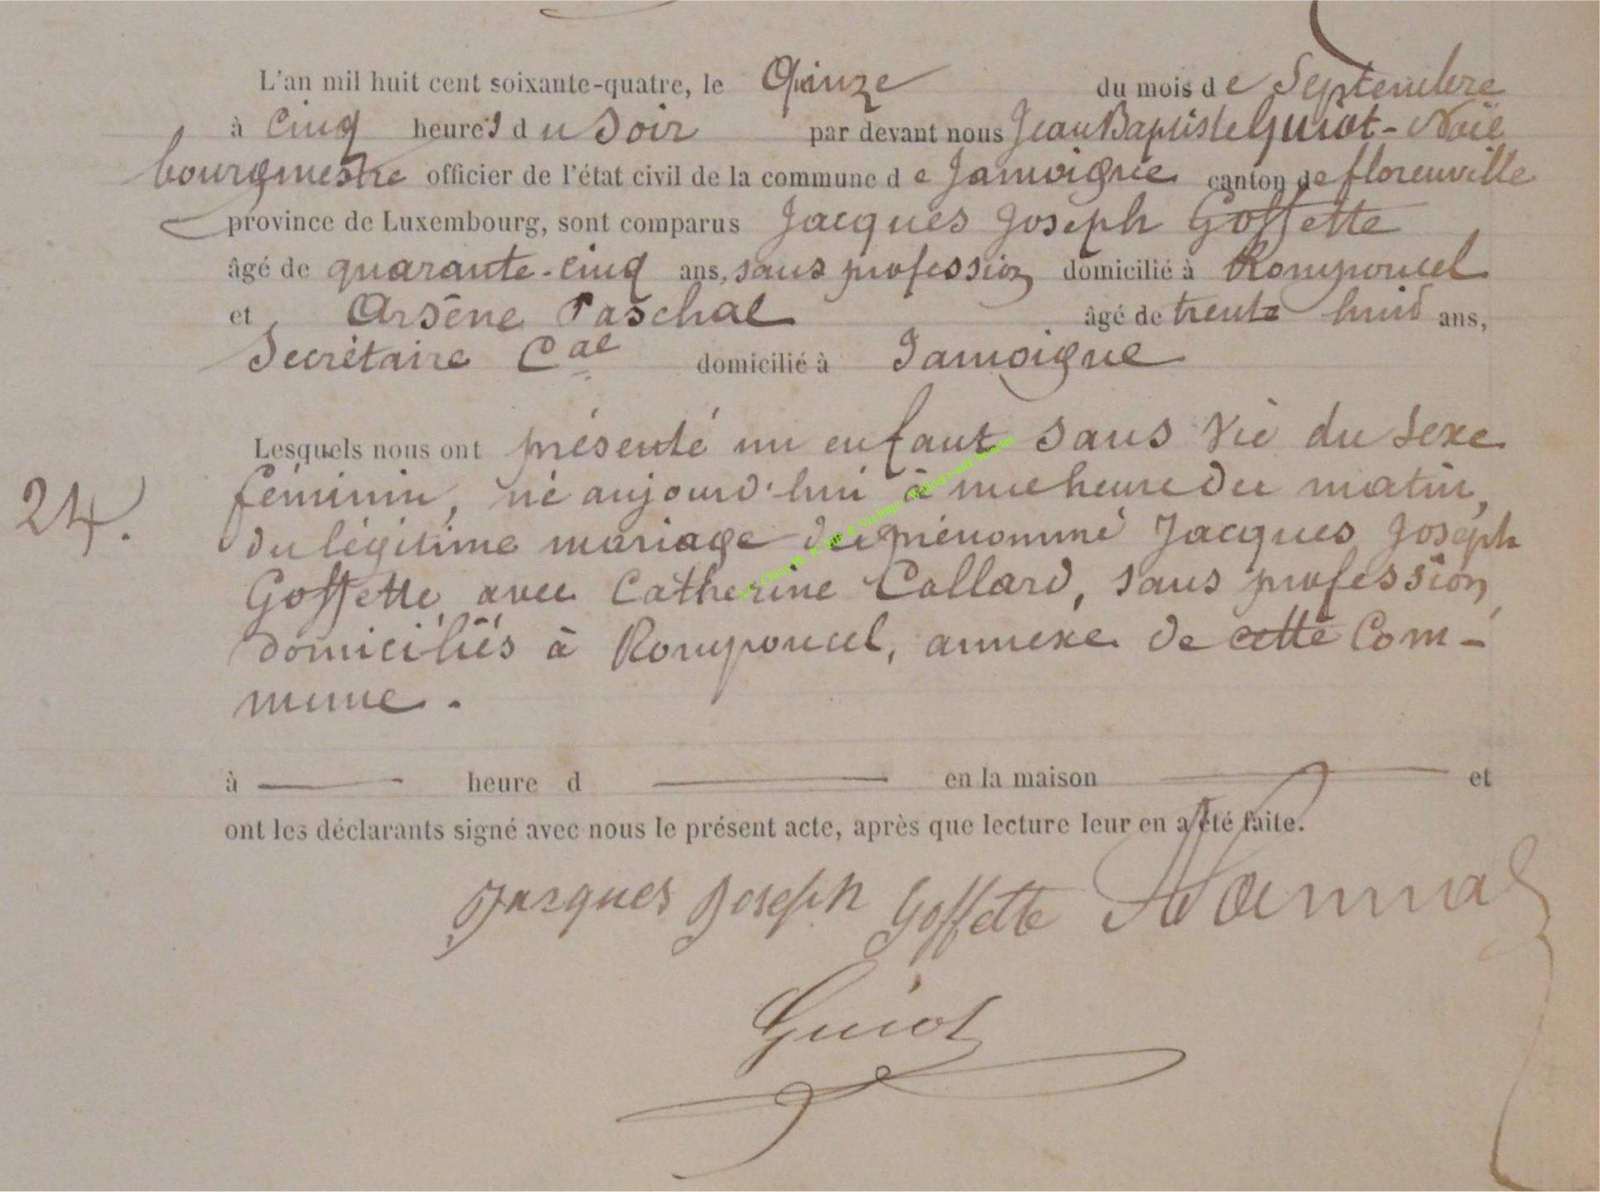 L'an mil huit cent soixante-quatre, le Quinze du mois de Septembre
à cinq heures du soir par devant nous Jean Baptiste Guiot-Noël
bourgmestre officier de l'état civil de la commune de Jamoigne canton de florenville
province de Luxembourg, sont comparus Jacques Joseph Goffette
âgé de quarante-cinq ans, sans profession domicilié à Romponcel
et Arsène Paschal âgé de trente huit ans,
Secrétaire Cal domicilié à Jamoigne
Lesquels nous ont présenté un enfant sans vie du sexe
féminin, né aujourd'hui à une heure du matin,
24.
du légitime mariage du prénommé Jacques Joseph
Goffette avec Catherine Collard, sans profession,
domiciliés à Romponcel, annexe de cette Com-
mune.
à heure d en la maison et
ont les déclarants signé avec nous le présent acte, après que lecture leur en a été faite.
Jacques Joseph Goffette
Guiot